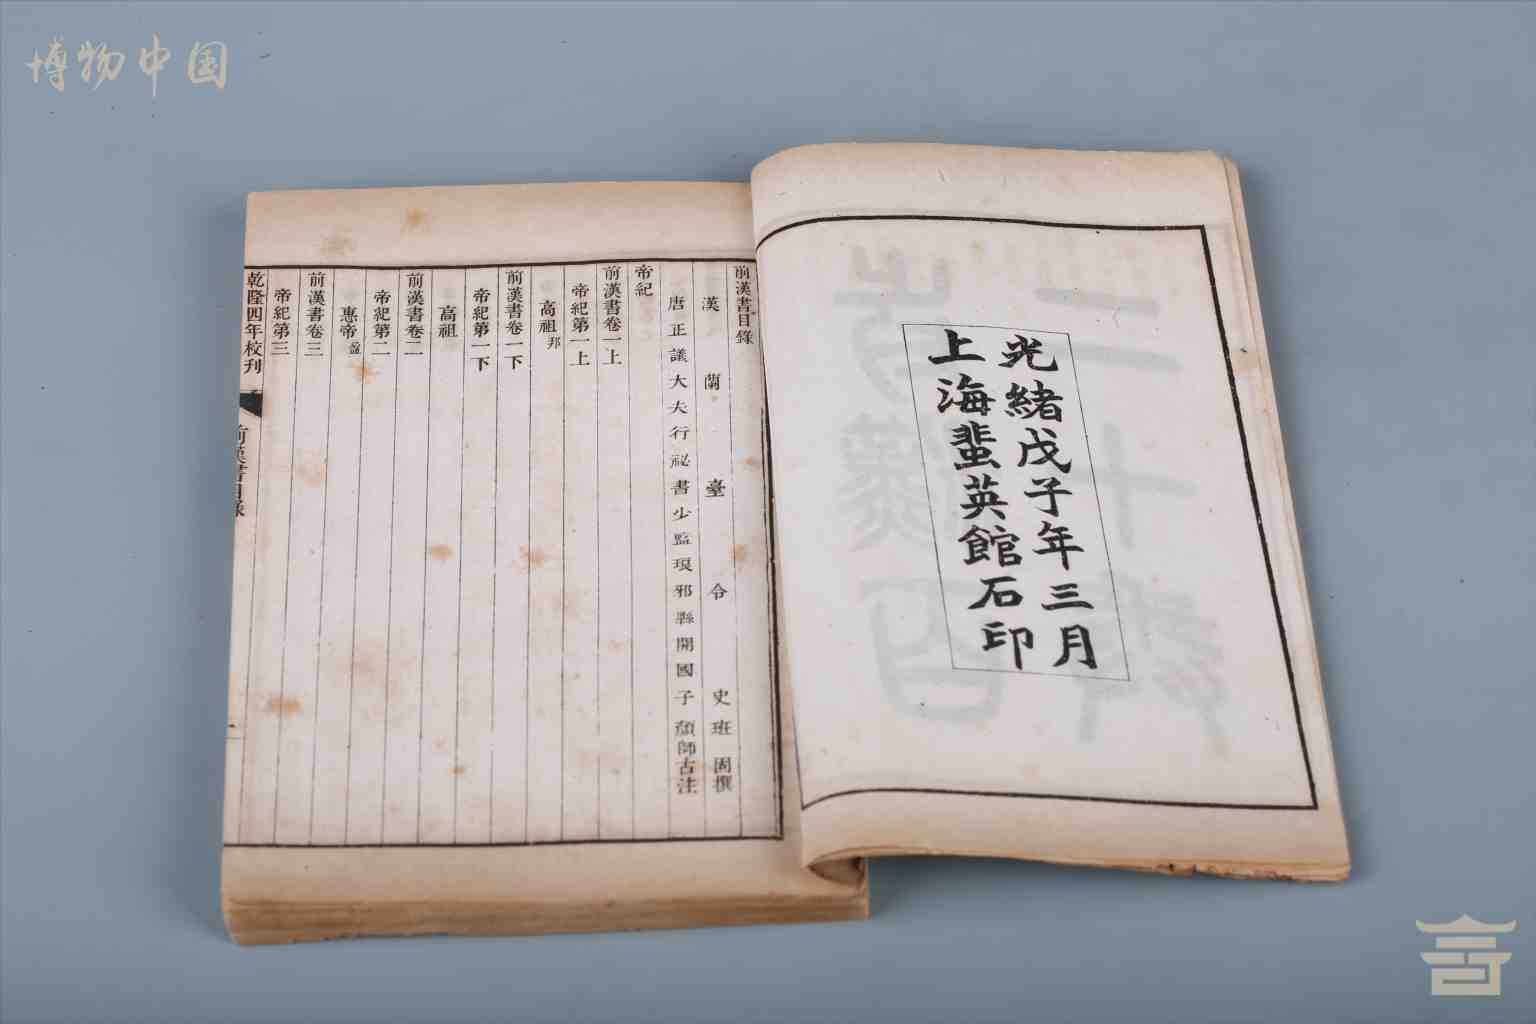 博物中国
光緒戊子年三月
上海蜚英館石印
前漢書目錄
漢蘭臺令史班固撰
唐正議大夫行祕書少監琅邪縣開國子顏師古注
帝紀
前漢書卷一上
帝紀第一上
高祖邦
前漢書卷一下
帝紀第一下
高祖
前漢書卷二
帝紀第二
惠帝盈
前漢書卷三
帝紀第三
乾隆四年校刊
前漢書目錄
一